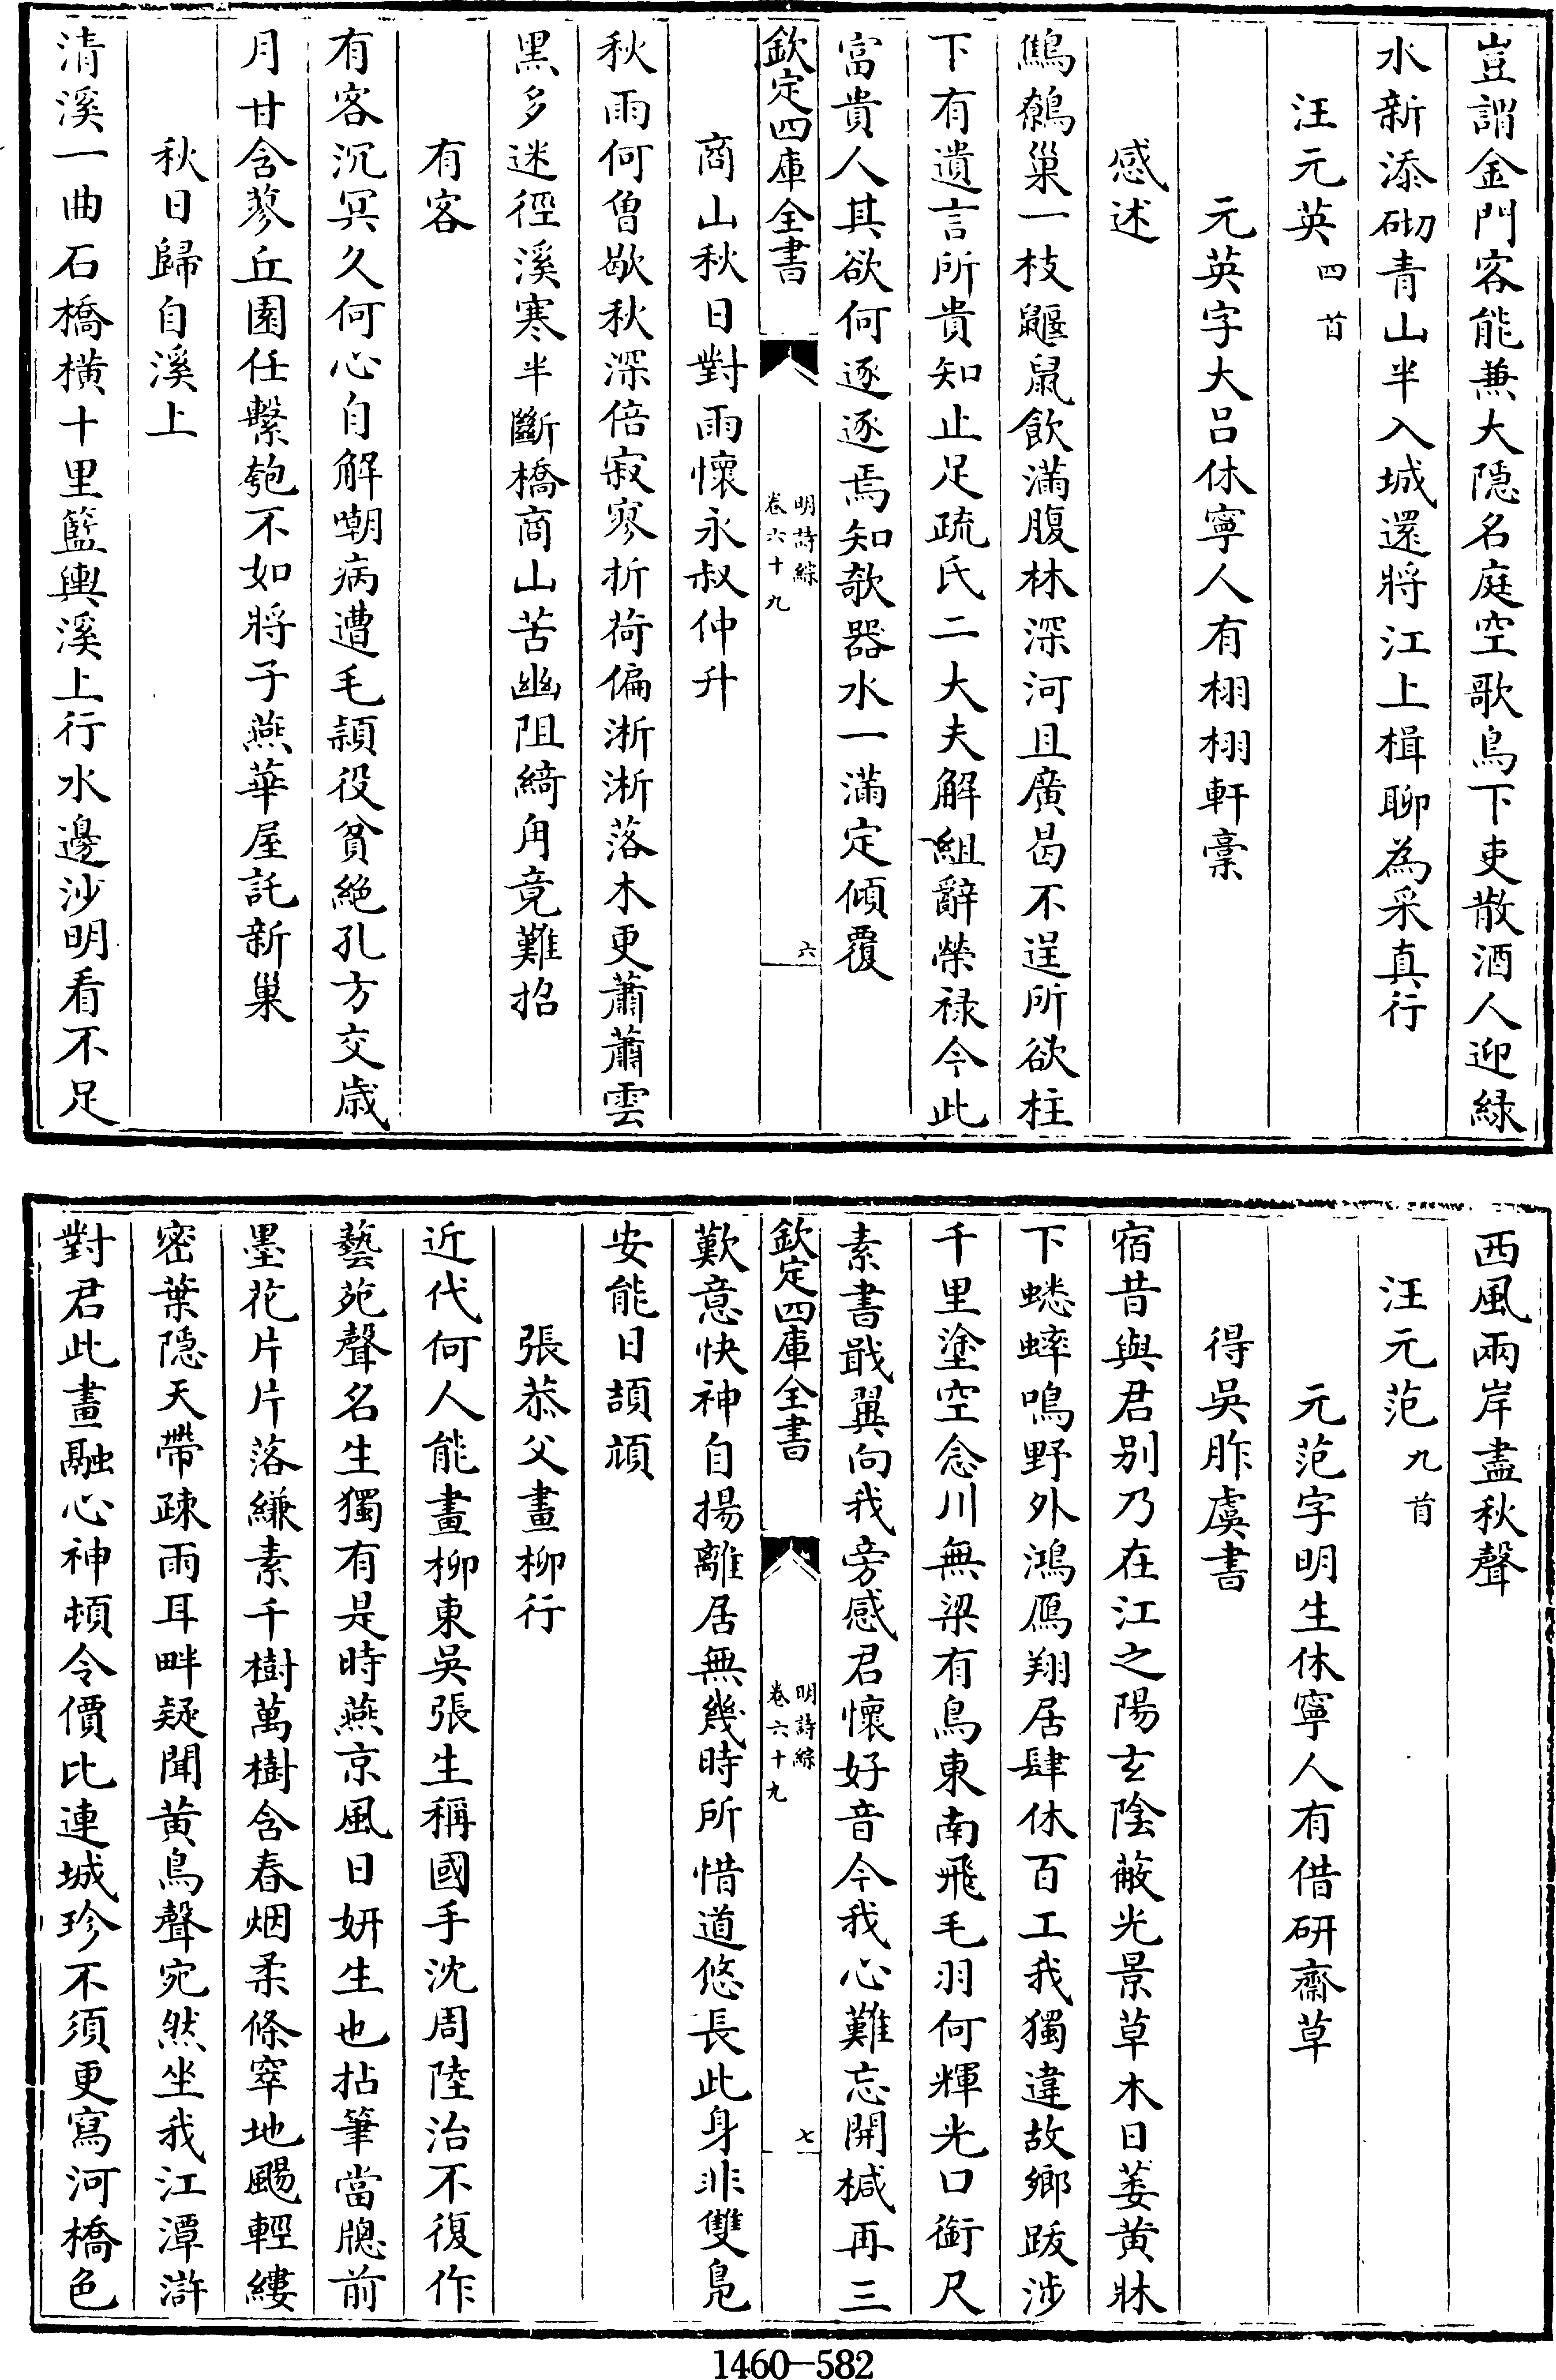 豈謂金門客能兼大隐名庭空歌鳥下吏散酒人迎緑
水新添砌青山半入城還將江上楫聊為采真行
汪元英四首
元英字大呂休寧人有栩栩軒稾
感述
鷦鷯巢一枝鼴鼠飲滿腹林深河且廣曷不逞所欲柱
下有遺言所貴知止足疏氏二大夫解組辭榮禄今此
富貴人其欲何逐逐焉知欹器水一滿定傾覆
欽定四庫全書
明詩綜
卷六十九
六
商山秋日對雨懷永叔仲升
秋雨何曾歇秋深倍寂寥折荷偏淅淅落木更蕭蕭雲
黑多迷徑溪寒半斷橋商山苦幽阻綺甪竟難招
有客
有客沉冥久何心自解嘲病遭毛頴役貧絶孔方交歳
月甘含蓼丘園任繫匏不如將子燕華屋託新巢
秋日歸自溪上
清溪一曲石橋横十里籃輿溪上行水邊沙明看不足
西風兩岸盡秋聲
汪元范九首
元范字明生休寧人有借研齋草
得吳胙虞書
宿昔與君别乃在江之陽玄陰蔽光景草木日萎黄牀
下蟋蟀鳴野外鴻鴈翔居肆休百工我獨違故鄉跋涉
千里塗空念川無梁有鳥東南飛毛羽何輝光口銜尺
素書戢翼向我旁感君懷好音今我心難忘開椷再三
欽定四庫全書
明詩綜
卷六十九
七
歎意快神自揚離居無幾時所惜道悠長此身非雙鳬
安能日頡頏
張恭父畫柳行
近代何人能畫柳東吳張生稱國手沈周陸治不復作
藝苑聲名生獨有是時燕京風日妍生也拈筆當牕前
墨花片片落縑素千樹萬樹含春烟柔條窣地颺輕縷
密葉隱天帶疎雨耳畔疑聞黄鳥聲宛然坐我江潭滸
對君此畫融心神頓令價比連城珍不須更寫河橋色
1460—582